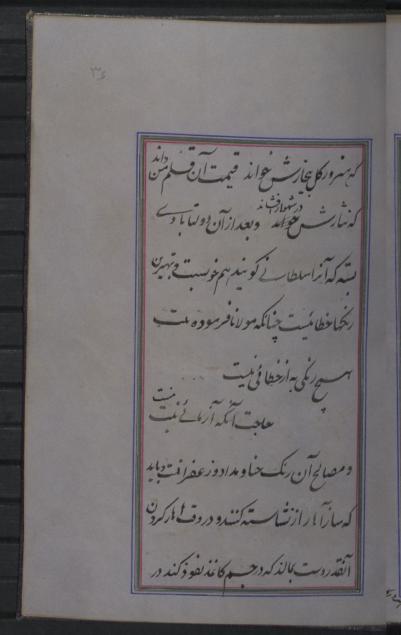 ۳۶
که هنرور کل بخارش خواند قیمت آن قلم من داند
که نثارش خواند در شهوار فشاند و بعد از آن دولتابادی
بسته که آنرا سلطانی گویند هم خوبست و بهترین
رنگها خطائیست چنانکه مولانا فرموده بیت
هیچ رنگی به از خطائی نیست
حاجت آنکه آزمائی نیست
و مصالح آن رنگ حنا و مداد و زعفرانست و باید
که ساز آهار از نشاسته کنند و در وقت آهار کردن
آنقدر دست بمالند که در جسم کاغذ نفوذ کند در